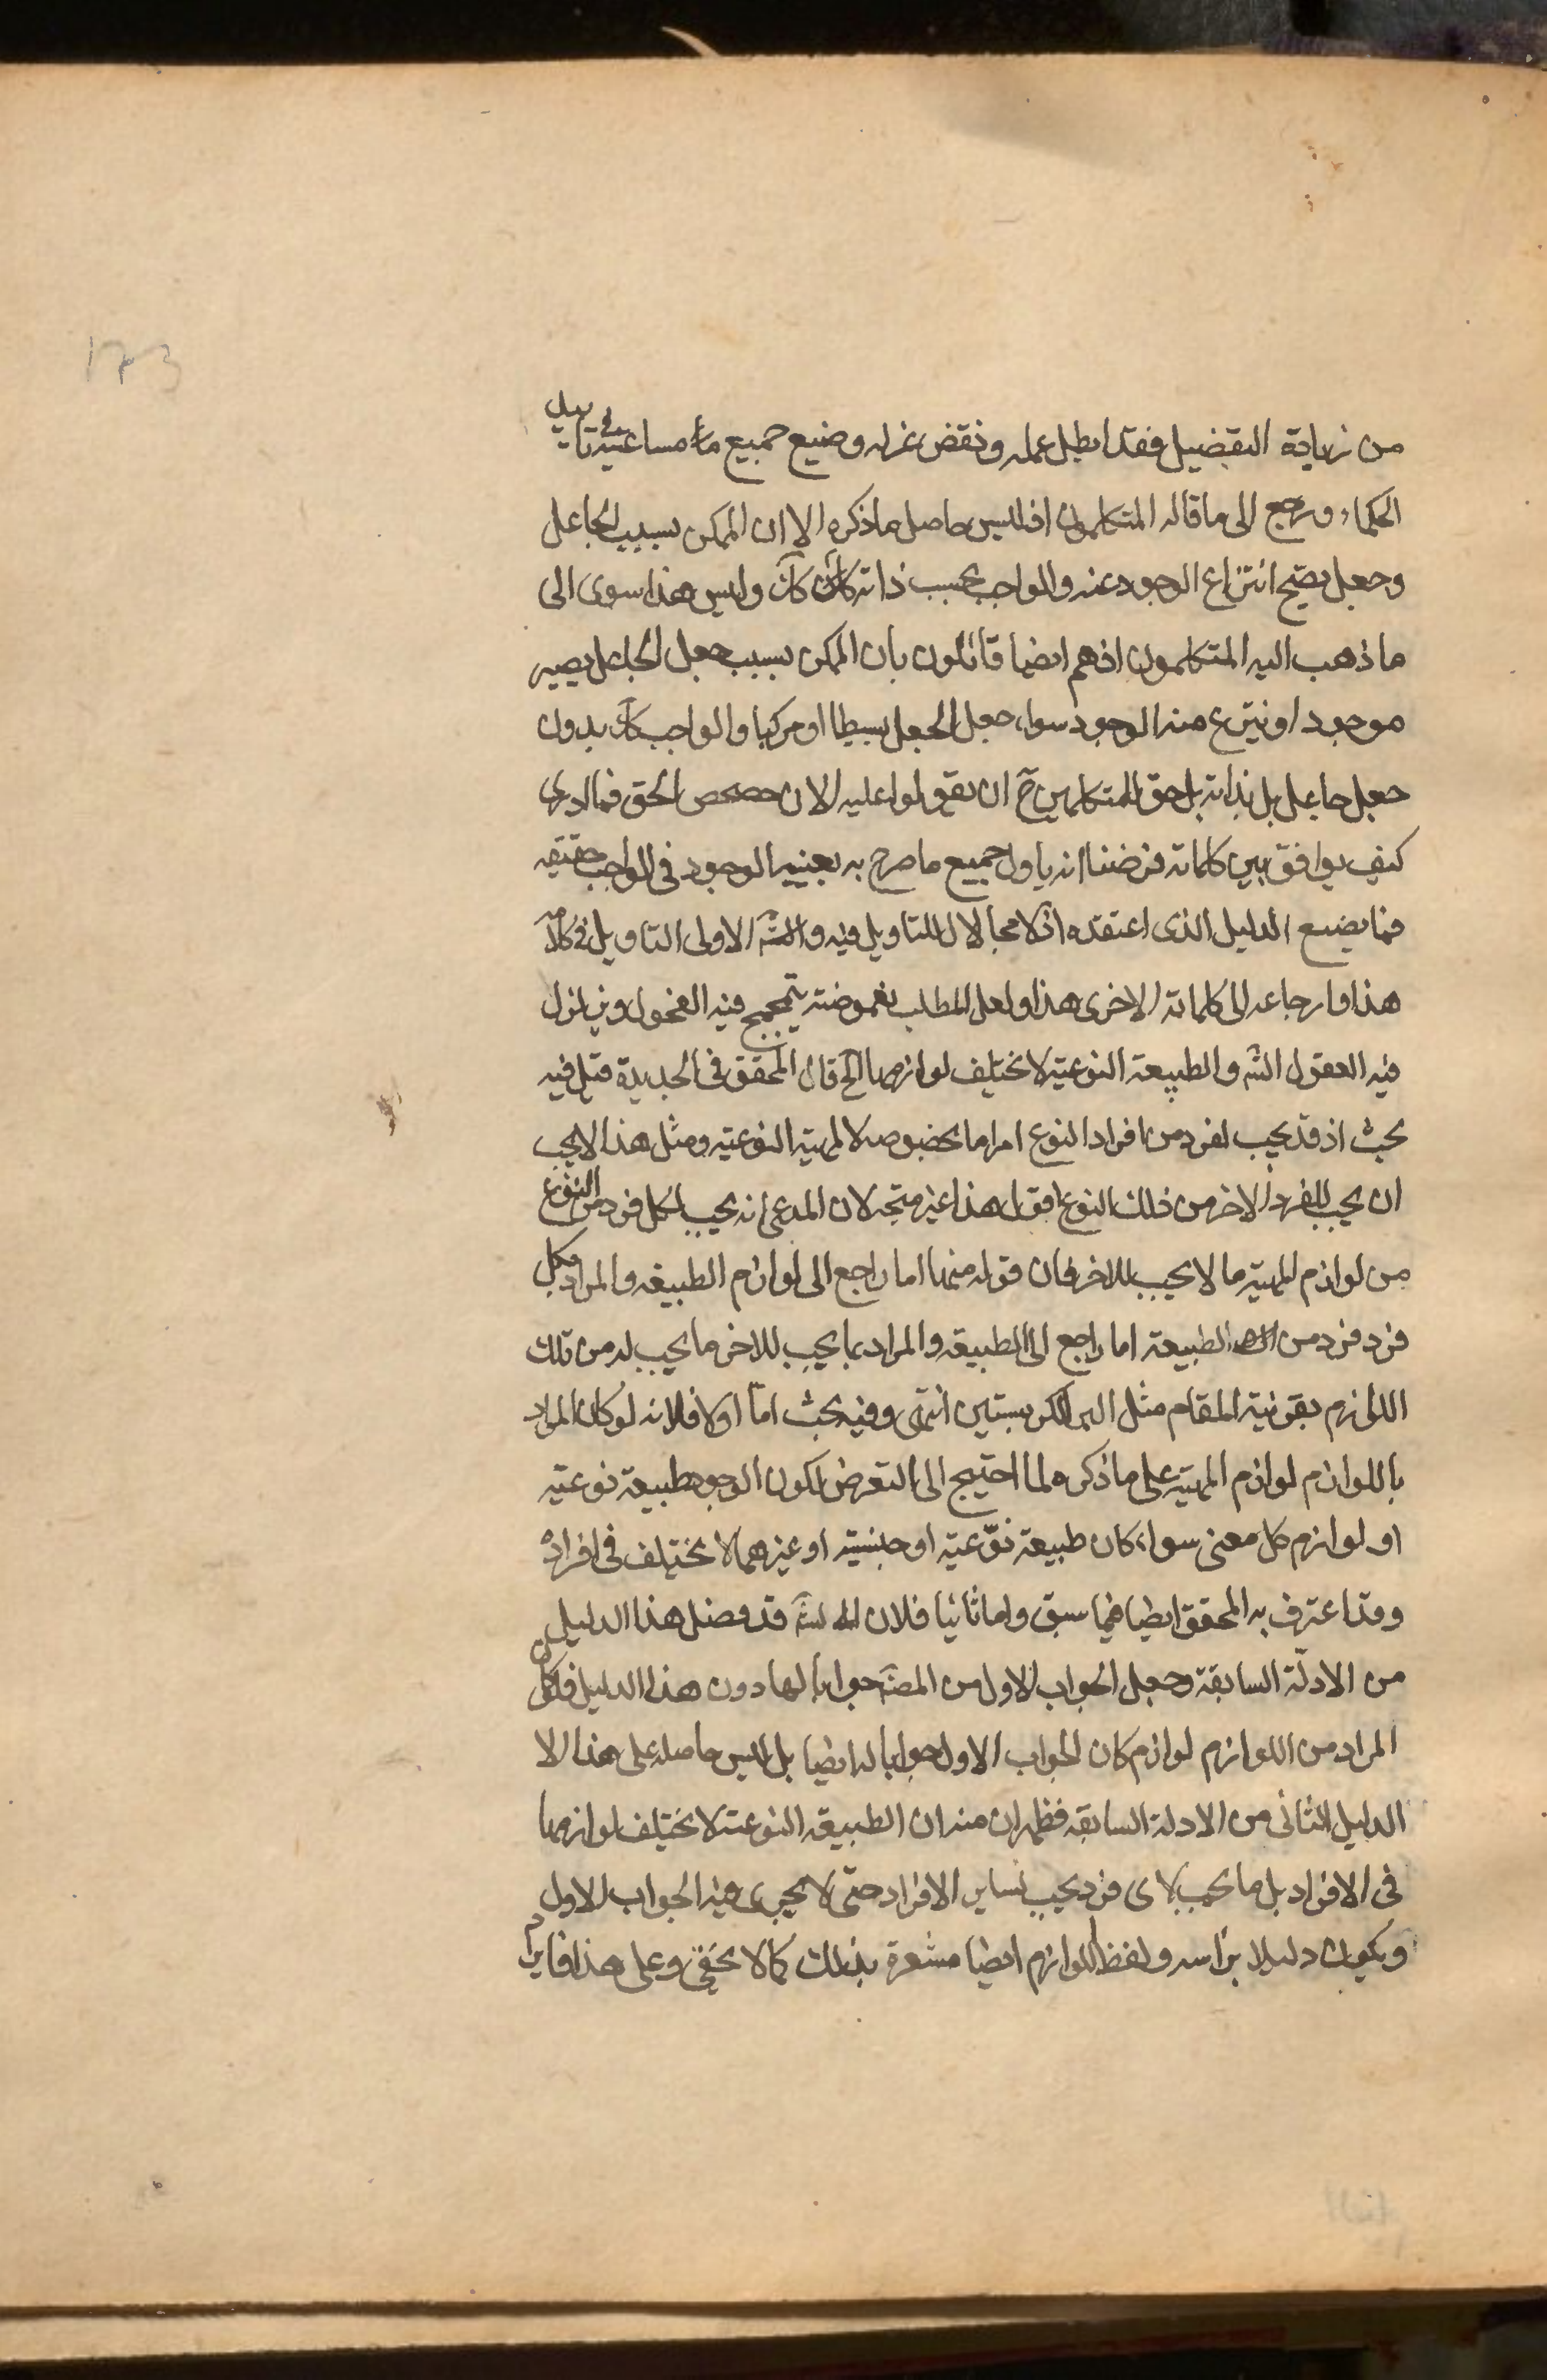 173
من زيادة التفضيل فقد ابطل عمله ونقض غزله وضيع جميع مساعيه في تاييد
الحكماء ورجع الى ما قاله المتكلمون اذ ليس حاصل ما ذكره الا ان الممكن بسبب الجاعل
وجعله يصح انتزاع الوجود عنه والواجب بحسب ذاته كك وليس هذا سوى الى
ما ذهب اليه المتكلمون اذ هم ايضا قائلون بان الممكن بسبب جعل الجاعل يصير
موجودا وينتزع منه الوجود سواء جعل الجعل بسيطا او مركبا والواجب كك بدون
جعل جاعل بل بذاته بل حق للمتكلمين ح ان يقولوا عليه الان حصحص الحق فما ادرى
كيف يوافق بين كلماته فرضنا انه ياول جميع ما صرح به بعينيه الوجود في الواجب حقيقه
فما يضيع الدليل الذى اعتقده اذ لا مجالا للتاويل فيه والله الاولى التاويل في كلامه
هذا وارجاعه الى كلماته الاخرى هذا ولعل المطلب لغموضته يتمجمج فيه الفحول ويزلزل
فيه العقول الشه والطبيعة النوعية لا تختلف لوازمها الخ قال المحقق في الجديدة قيل فيه
بحث اذ قد يجب لفرد من افراد النوع امر ما بخصوصه لا لمهيته النوعيته ومثل هذا لا يجب
ان يجب للفرد الاخر من ذلك النوع اقول هذا غير متجه لان المدعى انه يجب لكل فرد من النوع
من لوازم المهية ما لا يجب للاخر فان قوله منها اما راجع الى لوازم الطبيعه والمراد فكل
فرد فرد من الطبيعة اما راجع الى الطبيعه والمراد بما يجب للاخر ما يجب له من تلك
اللوازم بقرنية المقام مثل البر الكر بستين انتهى وفيه بحث اما اولا فلانه لو كان المراد
باللوازم لوازم المهية على ما ذكره لما احتيج الى التعرض لكون الوجود طبيعة نوعية
او لوازم كل معنى سواء كان طبيعة نوّعية او جنسية او غيرهما لا يختلف في افراده
وقد اعترف به المحقق ايضا فيما سبق واما ثانيا فلان الشه قد فصل هذا الدليل
من الادلّة السابقة وجعل الجواب الاول من المصه جوابا لها دون هذا الدليل فلو كان
المراد من اللوازم لوازم كان الجواب الاول جوابا له ايضا بل ليس حاصله على هذا الا
الدليل الثانى من الادلة السابقه فظهر ان منه ان الطبيعه النوعية لا يختلف لوازمها
في الافراد بل ما يجب لاى فرد يجب لساير الافراد حتى لا يجرى فيه الجواب الاول
ويكون دليلا براسه ولفظ اللوازم ايضا مشعرة بذلك كما لا يخفى وعلى هذا فايراد